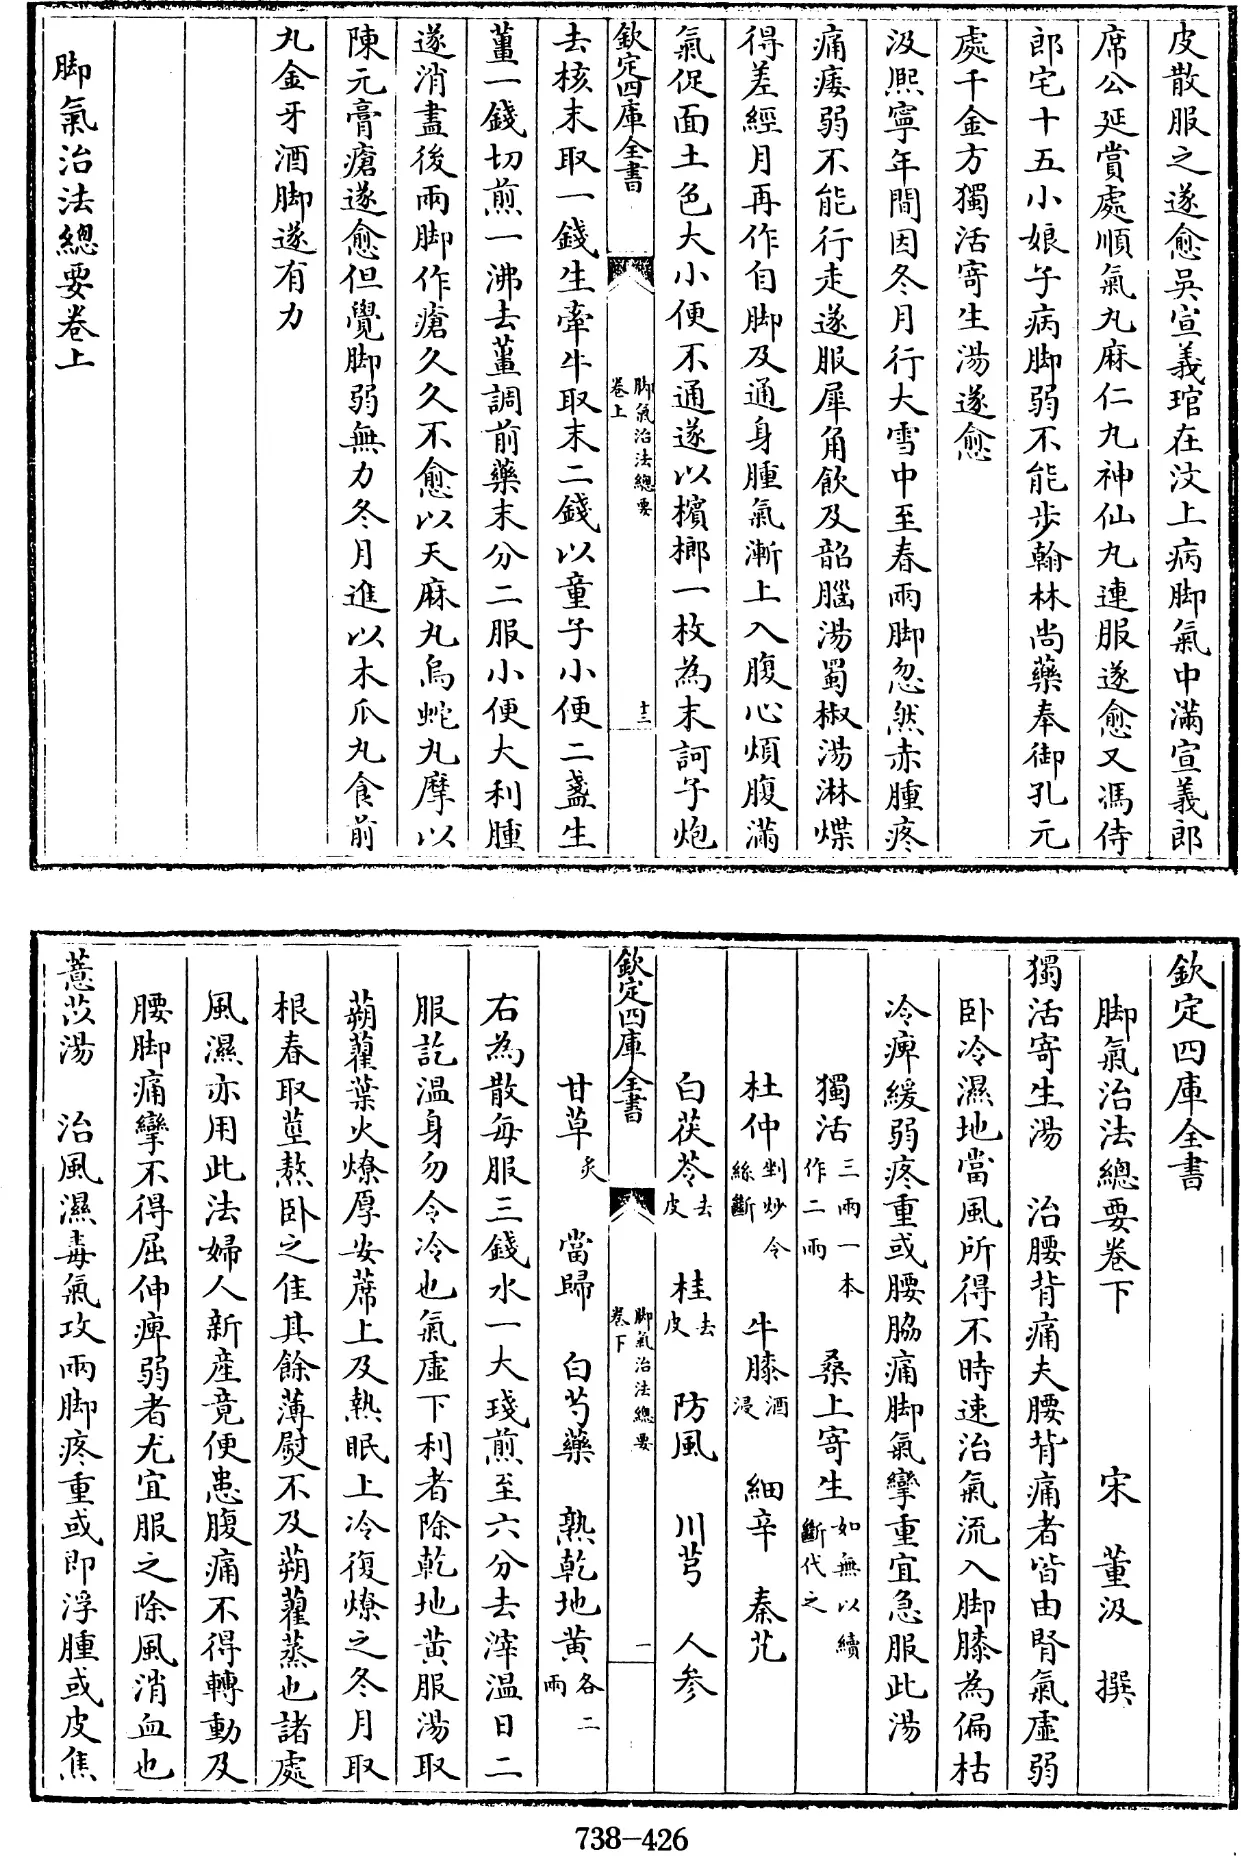 皮散服之遂愈吳宣義琯在汶上病脚氣中滿宣義郎
席公延賞處順氣丸麻仁丸神仙丸連服遂愈又馮侍
郎宅十五小娘子病脚弱不能步翰林尚藥奉御孔元
處千金方獨活寄生湯遂愈
汲熙寧年間因冬月行大雪中至春兩脚忽然赤腫疼
痛痿弱不能行走遂服犀角飲及韶腦湯蜀椒湯淋煠
得差經月再作自脚及通身腫氣漸上入腹心煩腹滿
氣促面土色大小便不通遂以檳榔一枚為末訶子炮
欽定四庫全書
脚氣治法總要
卷上
十三
去核末取一錢生牽牛取末二錢以童子小便二盞生
薑一錢切煎一沸去薑調前藥末分二服小便大利腫
遂消盡後兩脚作瘡久久不愈以天麻丸烏蛇丸摩以
陳元膏瘡遂愈但覺脚弱無力冬月進以木瓜丸食前
丸金牙酒脚遂有力
脚氣治法總要卷上
欽定四庫全書
脚氣治法總要卷下 宋 董汲 撰
獨活寄生湯 治腰背痛夫腰背痛者皆由腎氣虛弱
卧冷濕地當風所得不時速治氣流入脚膝為偏枯
冷痺緩弱疼重或腰脇痛脚氣攣重宜急服此湯
獨活三兩一本作二兩 桑上寄生如無以續斷代之
杜仲剉炒令絲斷 牛膝酒浸 細辛 秦艽
白茯苓去皮 桂去皮 防風 川芎 人參
欽定四庫全書
脚氣治法總要
卷下
一
甘草炙 當歸 白芍藥 熟乾地黃各二兩
右為散每服三錢水一大琖煎至六分去滓温日二
服訖温身勿令冷也氣虛下利者除乾地黃服湯取
蒴藋葉火燎厚安蓆上及熱眠上冷復燎之冬月取
根春取莖熬卧之佳其餘薄熨不及蒴藋蒸也諸處
風濕亦用此法婦人新産竟便患腹痛不得轉動及
腰脚痛攣不得屈伸痺弱者尤宜服之除風消血也
薏苡湯 治風濕毒氣攻兩脚疼重或即浮腫或皮焦
738-426